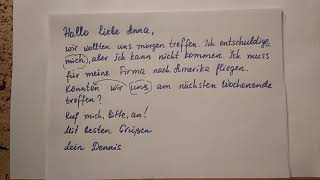 Hallo liebe Anna,
wir wollten uns morgen treffen. Ich entschuldige
mich, aber ich kann nicht kommen. Ich muss
für meine Firma nach Amerika fliegen.
Könnten wir uns am nächsten Wochenende
treffen?
Ruf mich, bitte, an!
Mit besten Grüßen
dein Dennis